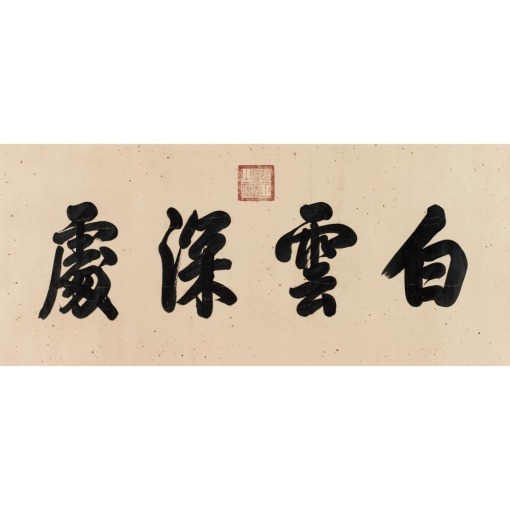 白雲深處